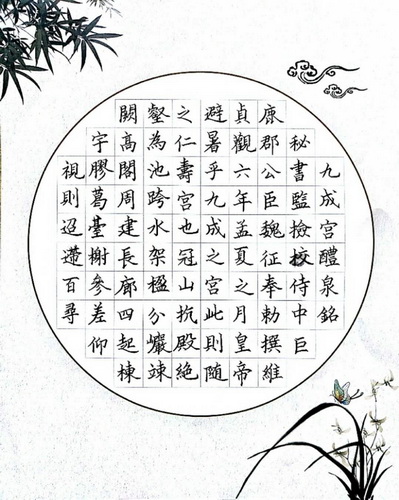 九成宮醴泉銘
秘書監檢校侍中巨
鹿郡公臣魏征奉勅撰維
貞觀六年孟夏之月皇帝
避暑乎九成之宮此則隨
之仁壽宮也冠山抗殿絕
壑為池跨水架楹分巖竦
闕高閣周建長廊四起棟
宇膠葛臺榭參差仰
視則迢遰百尋